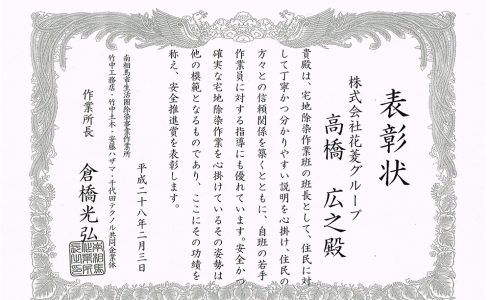 表彰状
株式会社花菱グループ
高橋 広之殿
貴殿は、宅地除染作業班の班長として、住民に対
して丁寧かつ分かりやすい説明を心掛け、住民の
方々との信頼関係を築くとともに、自班の若手
作業員に対する指導にも優れています。安全かつ
確実な宅地除染作業を心掛けているその姿勢は
他の模範となるものであり、ここにその功績を
称え、安全推進賞を表彰します。
平成二十八年二月三日
南相馬市生活圏除染事業作業所
竹中工務店・竹中土木・安藤ハザマ・千代田テクノル共同企業体
作業所長 倉橋光弘